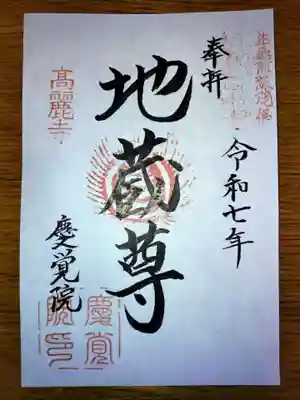 奉拝
令和七年
地蔵尊
高麗寺
慶覚院
慶覚
院印